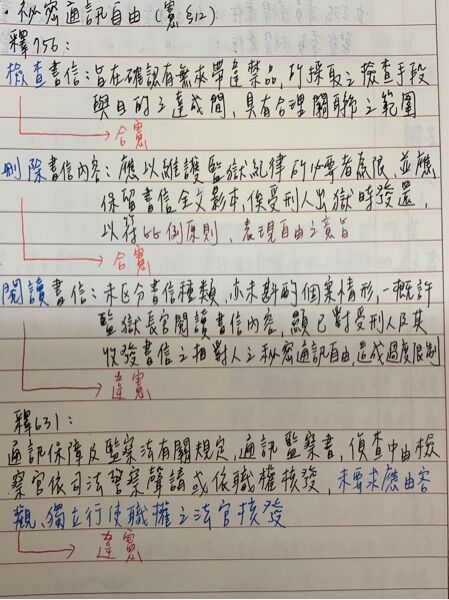 ·秘密通訊自由(憲§12)
釋756:
檢查書信:旨在確認有無夾帶違禁品,所採取之檢查手段
與目的之達成間,具有合理關聯之範圍
合憲
刪除書信內容:應以維護監獄紀律所必要者為限,並應
保留書信全文影本,俟受刑人出獄時發還,
以符比例原則、表現自由之意旨
合憲
閱讀書信:未區分書信種類,亦未斟酌個案情形,一概許
監獄長官閱讀書信內容,顯已對受刑人及其
收發書信之相對人之秘密通訊自由,造成過度限制
違憲
釋631:
通訊保障及監察法有關規定,通訊監察書,偵查中由檢
察官依司法警察聲請或依職權核發,未要求應由客
觀、獨立行使職權之法官核發
違憲